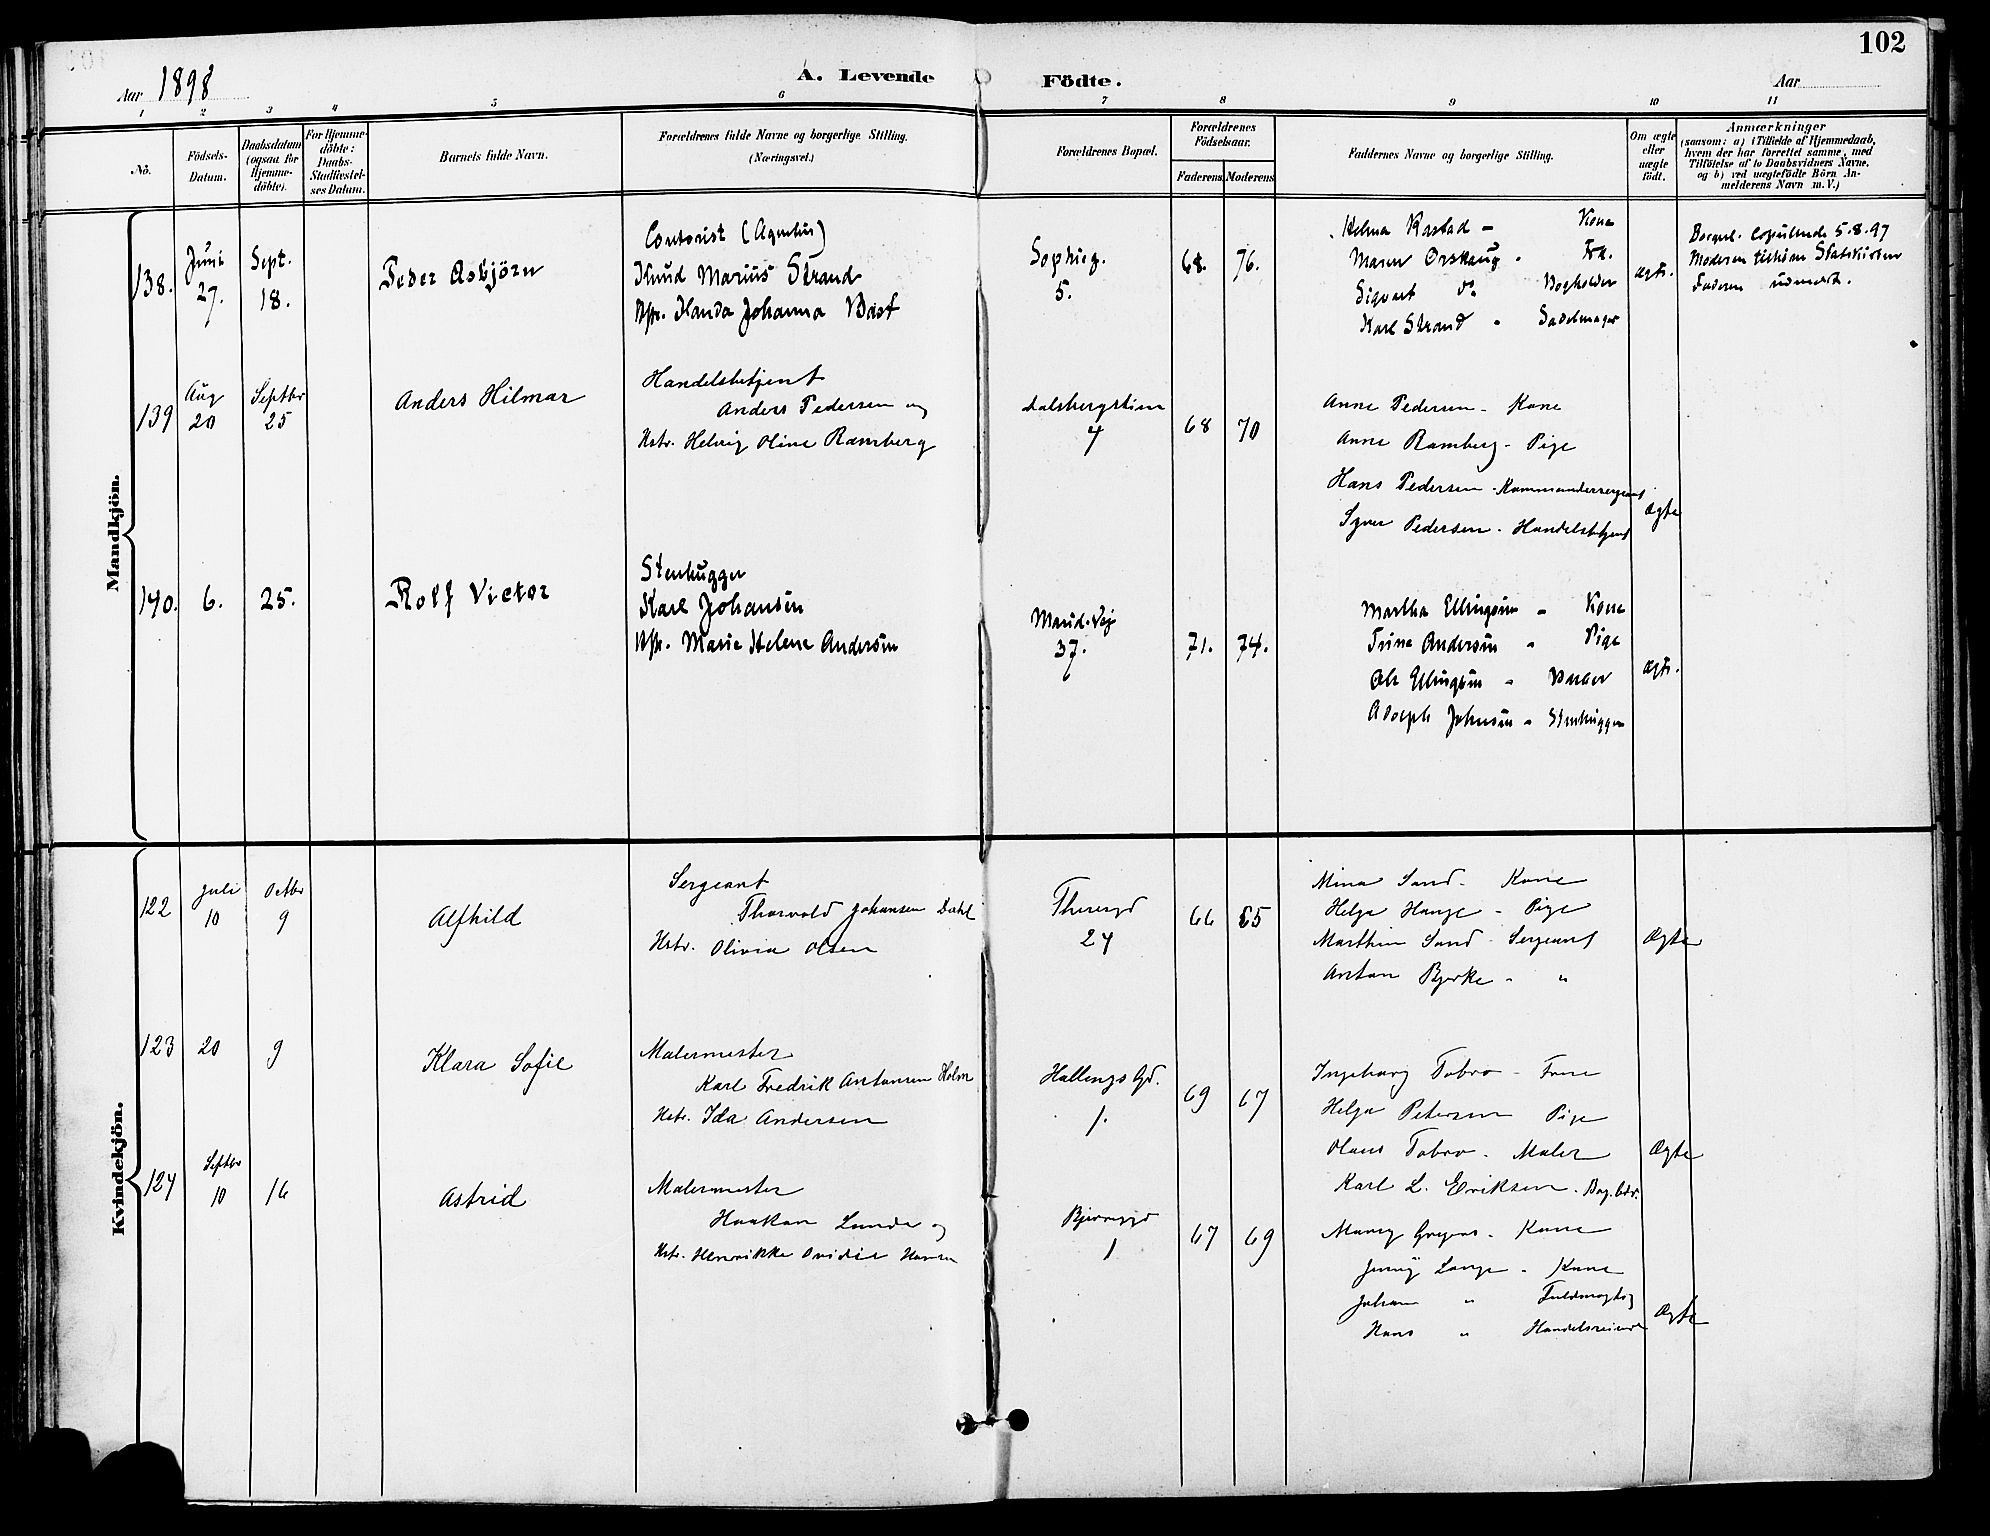 102
Aar 1898
A. Levende Födte.
Aar
1 2 3 4 5 6 7 8 9 10 11
No.
Födsels-Datum.
Daabsdatum (ogsaa for Hjemme-döbte).
For Hjemme-döbte: Daabs-Stadfestel-ses Datum.
Barnets fulde Navn.
Forældrenes fulde Navne og borgerlige Stilling.
(Næringsvei.)
Forældrenes Bopæl.
Forældrenes Födselsaar.
Faderens. Moderens.
Faddernes Navne og borgerlige Stilling.
Om ægte eller uægte födt.
Anmærkninger
(saasom: a) (Tilfælde af Hjemmedaab,
hvem der har forrettet samme, med
Tilföielse af to Daabsvidners Navne,
og b) ved uægtefödte Börn An-
melderens Navn m. V.)
Mandkjön.
138. Juni 27. Sept. 18.
Peder Asbjörn
Contorist (Agentur)
Knud Marius Strand
Hstr. Handa Johanna Bast
Sophieg. 5.
68. 76.
Helma Rastad - Kone
Maren Orskaug - Frk.
Sigvart do Bogholder
Karl Strand - Sadelmager
ægte.
Borgerl. copulerede 5.8.97
Moderen tilhører Statskirken
Faderen udmeldt.
139 Aug 20 Septbr 25
Anders Hilmar
Handelsbetjent
Anders Pedersen og
Hstr. Helvig Oline Ramberg
Dalsbergstien
4
68 70
Anne Pedersen - Kone
Anne Ramberg - Pige
Hans Pedersen - Kommandersergeant
Syver Pedersen - Handelsbetjent
Ægte
140. 6. 25.
Rolf Victor
Stenhugger
Karl Johansen
Hstr. Marie Helene Andersen
Marid.Vej
37.
71. 74.
Martha Ellingsen - Kone
Trine Andersen - Pige
Ole Ellingsen -
Adolph Johnsen - Stenhugger
ægte.
Kvindekjön.
122 Juli 10 Octbr 9
Alfhild
Sergeant
Thorvald Johansen Dahl
Hstr. Olivia Olsen
Theresgd
24
66 65
Mina Sand - Kone
Helga Hauge - Pige
Marthin Sand - Sergeant
Anton Bjerke - "
Ægte
123 20 9
Klara Sofie
Malermester
Karl Fredrik Antonsen Holm
Hstr. Ida Andersen
Hallings Gd.
1.
69 67
Ingeborg Tobro - Frue
Helga Petersen Pige
Olaus Tobro - Maler
Karl L. Eriksen - Bog.bdr.
Ægte
124 Septbr 10 16
Astrid
Malermester
Haakon Lunde og
Hstr. Henrikke Ovidie Hansen
Bjerregd
1
67 69
Jenny Lange - Kone
Johan " Fuldmægtig
Hans " Handelsreisende
Ægte